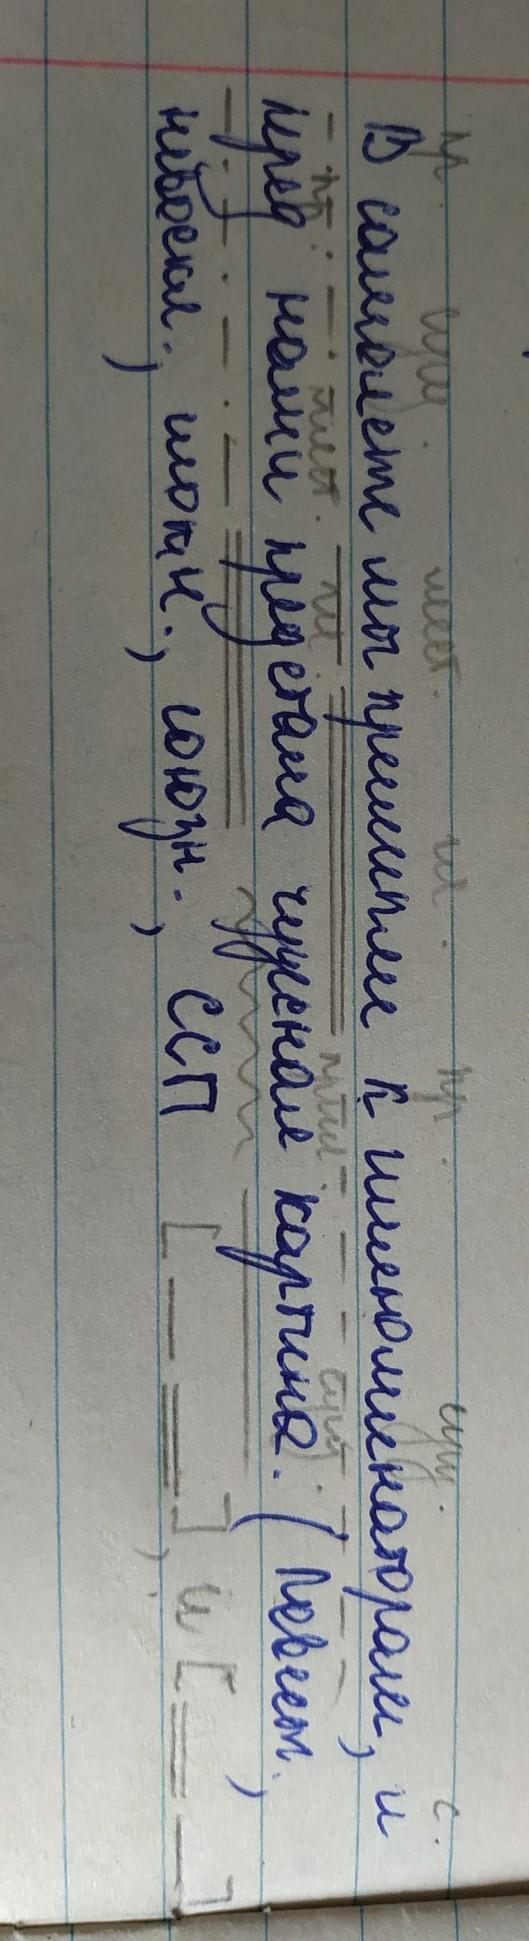 пр. сущ. мест. гл. пр. сущ. с.
В самолете мы прилипли к иллюминаторам, и
пр. мест. гл. прил. сущ.
перед нами предстала чудесная картина. (Повест.,
невоскл., сложн., союзн., ССП [— =], и [= —]